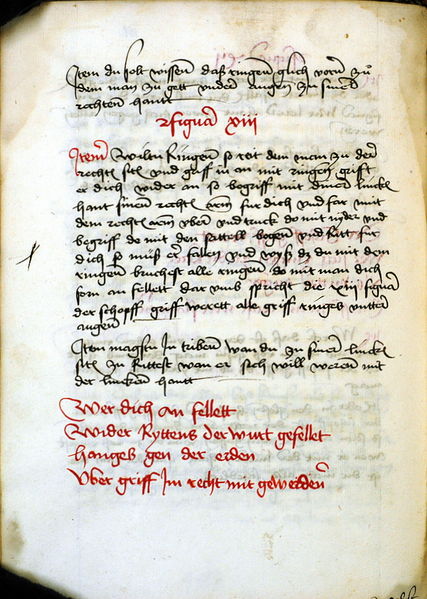 Item du solt wissen daß ringen glich vorn zů
dem man zu gett under augen zu siner
rechten hant
Figura xiii
Item Wiltu Ringen so reit dem man zu der
rechten siten und griff in an mit ringen grifft
er dich wider an so begriff mit diner lincken
hant sinen rechten arm für dich und far mit
dem rechten arm über und truck do mit nyder und
begriff do mit den sattell bogen und für
dich so müß er fallen und wyß dz du mit dem
ringen brichest alle ringen do mit man dich
an fellett dar umb spricht die xiii figura
der schopff griff werett alle griff ringes unter
augen
Item magstu In triben wan du zu siner lincken
siten zu Ruttest wan er sich will weren mit
der lincken hantt
Wer dich an fellett
Wider Ryttens der wurt gefellet
hanges gen der erden
Uber griff Im recht mit gewerden